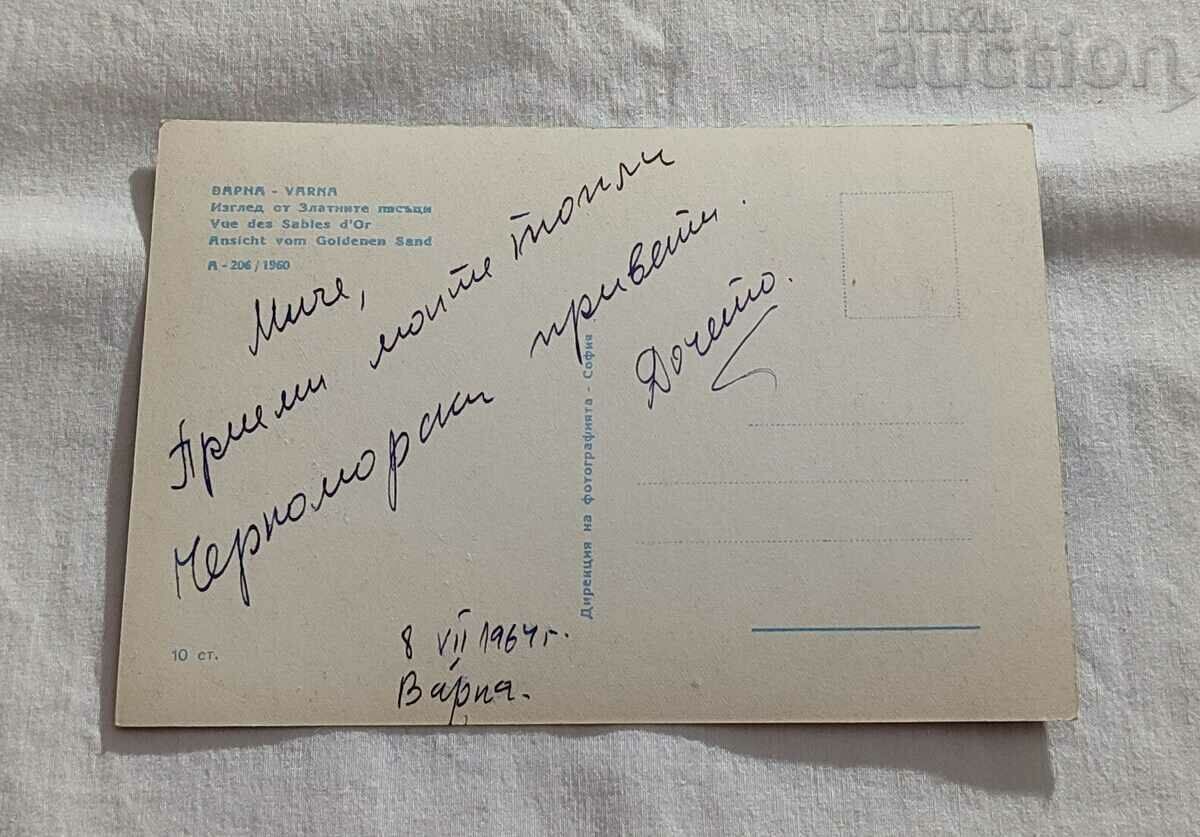 ВАРНА - VARNA
Изглед от Златните пясъци
Vue des Sables d'Or
Ansicht vom Goldenen Sand
А - 206 / 1960
Миче,
Приеми моите топли
Черноморски привети.
Дочето.
8 VII 1964 г.
Варна.
10 ст.
Дирекция на фотографията - София